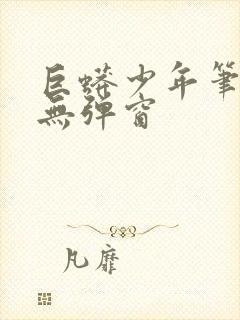 巨蟒少年筆
無彈窗
凡靡